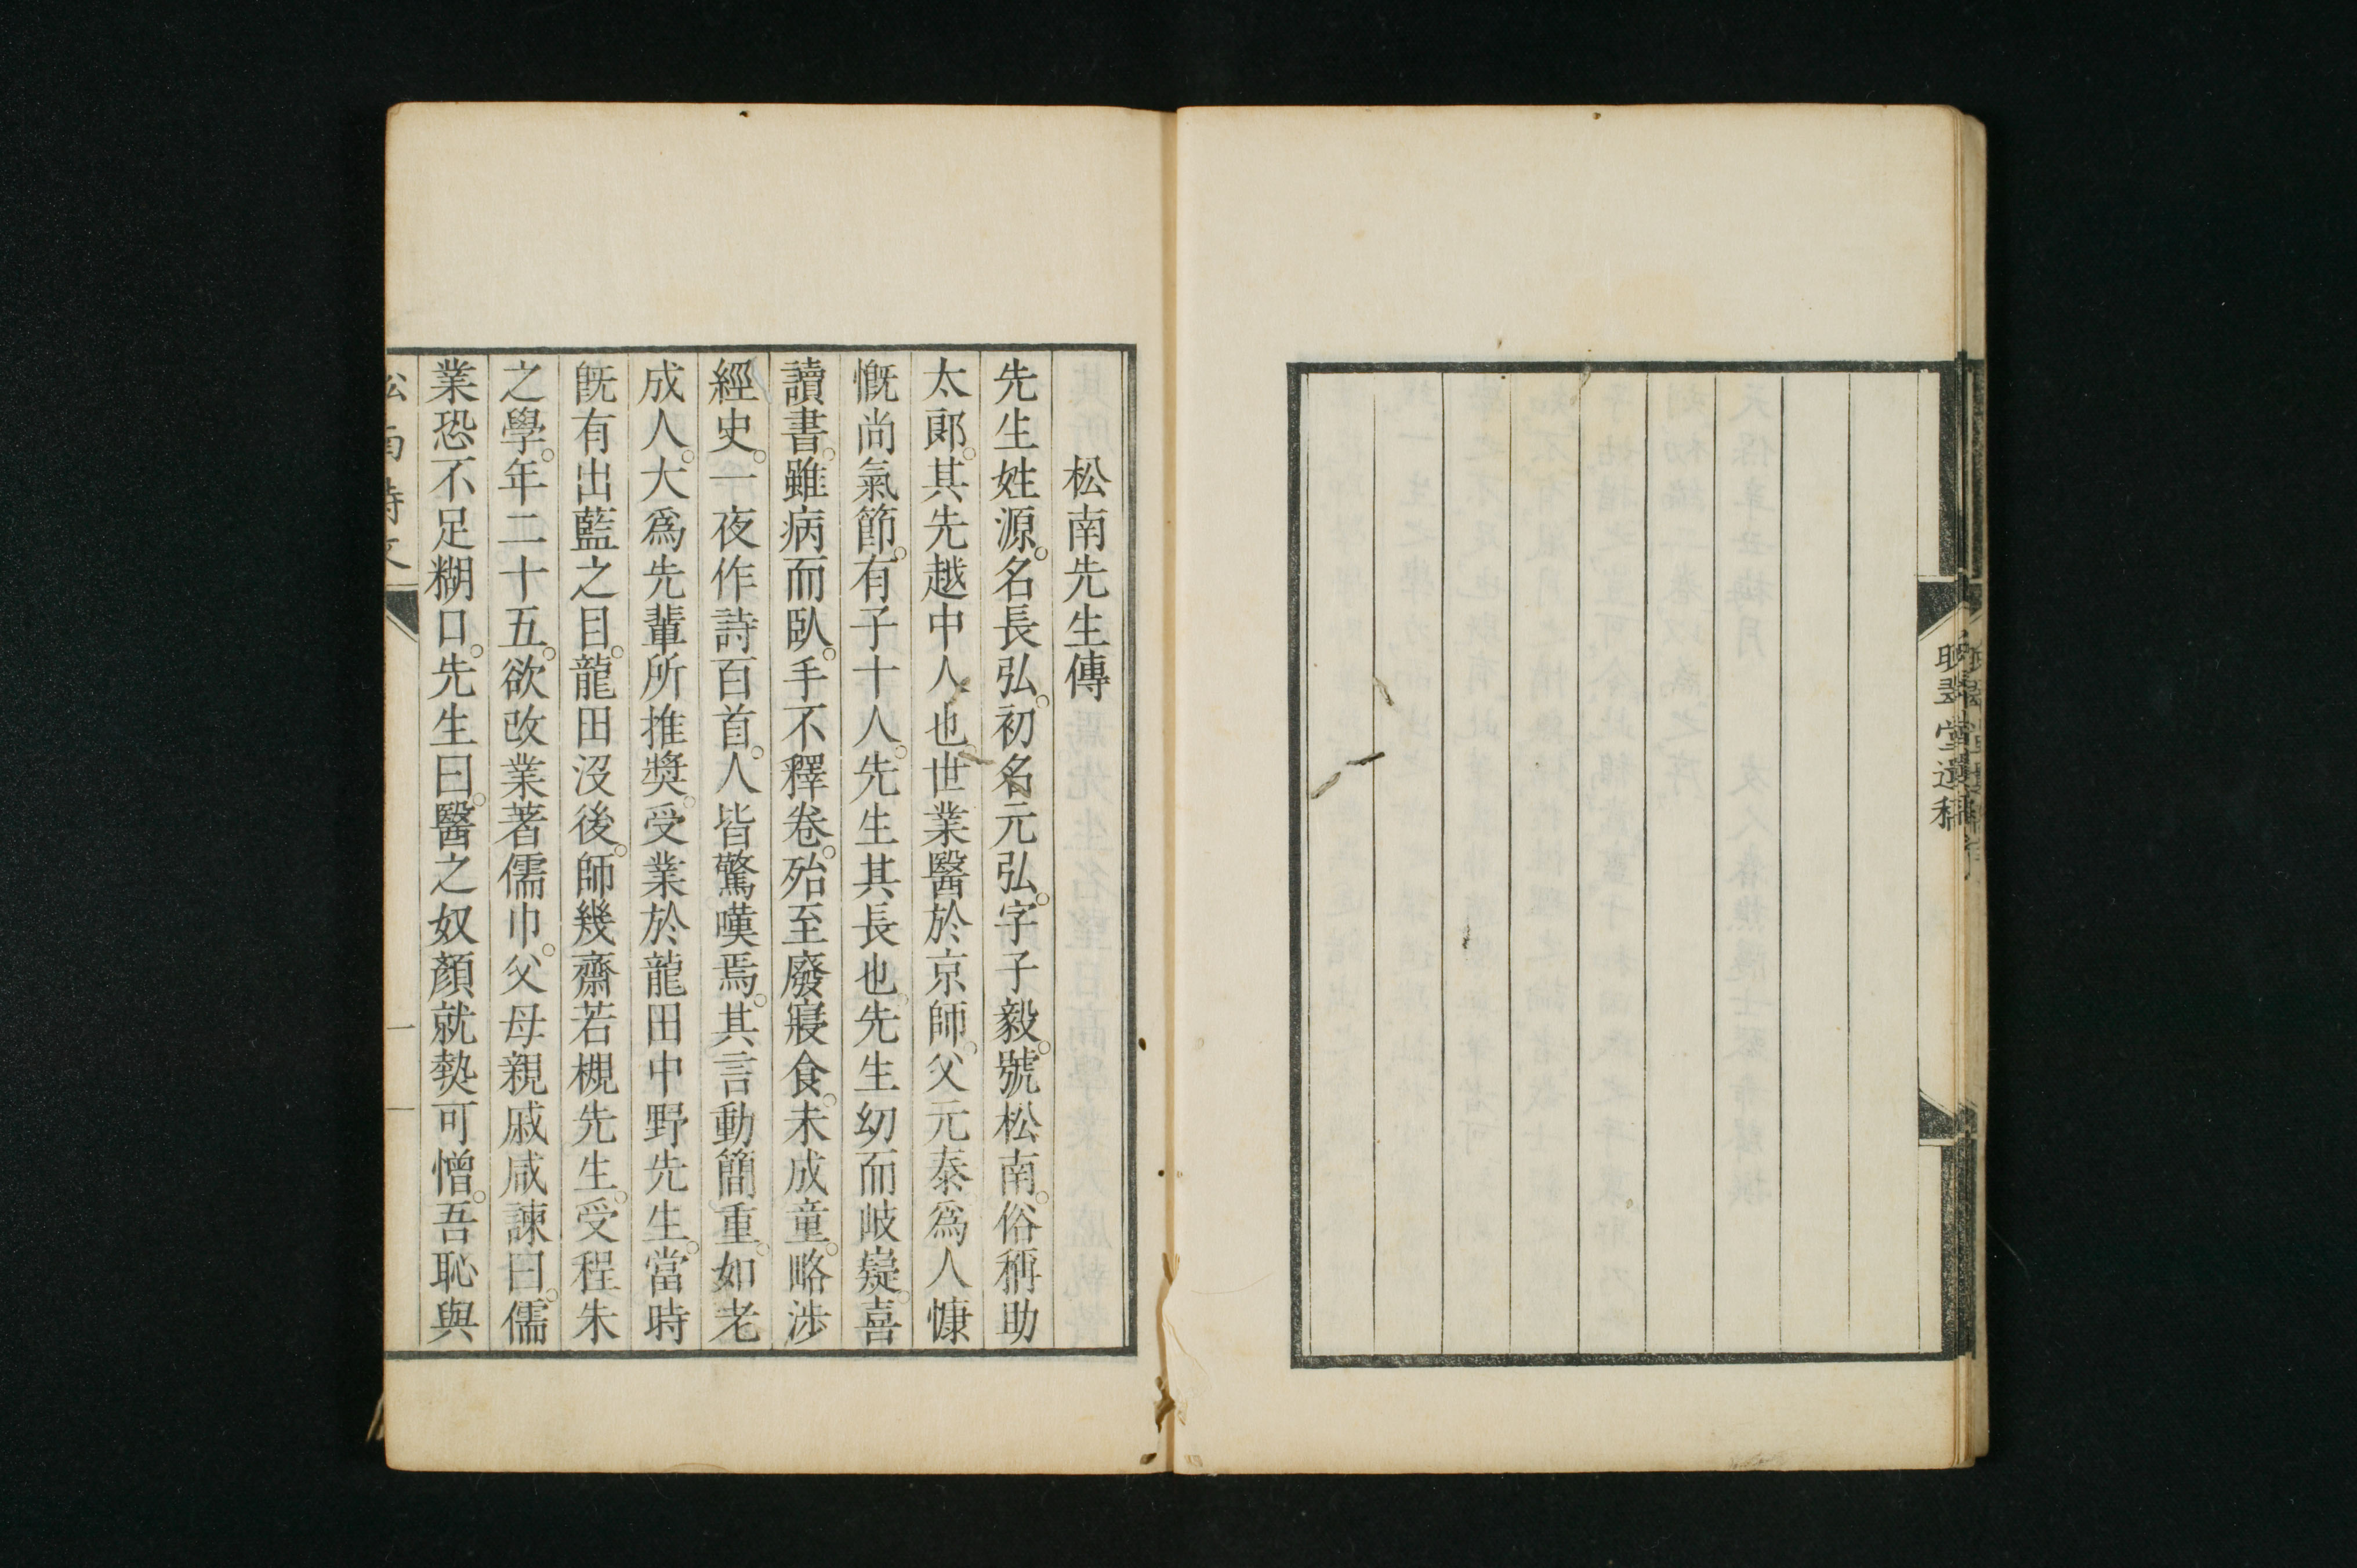 松南先生傳
先生姓源。名長弘。初名元弘。字子毅。號松南。俗稱助
太郎。其先越中人也。世業醫於京師。父元泰爲人慷
慨尚氣節。有子十人。先生其長也。先生幼而岐嶷。喜
讀書。雖病而臥。手不釋卷。殆至廢寢食。未成童。略涉
經史。一夜作詩百首。人皆驚嘆焉。其言動簡重。如老
成人。大爲先輩所推奬。受業於龍田中野先生。當時
旣有出藍之目。龍田沒後。師幾齋若槻先生。受程朱
之學。年二十五。欲改業著儒巾。父母親戚咸諫曰。儒
業恐不足糊口。先生曰。醫之奴顏就執可憎。吾恥與